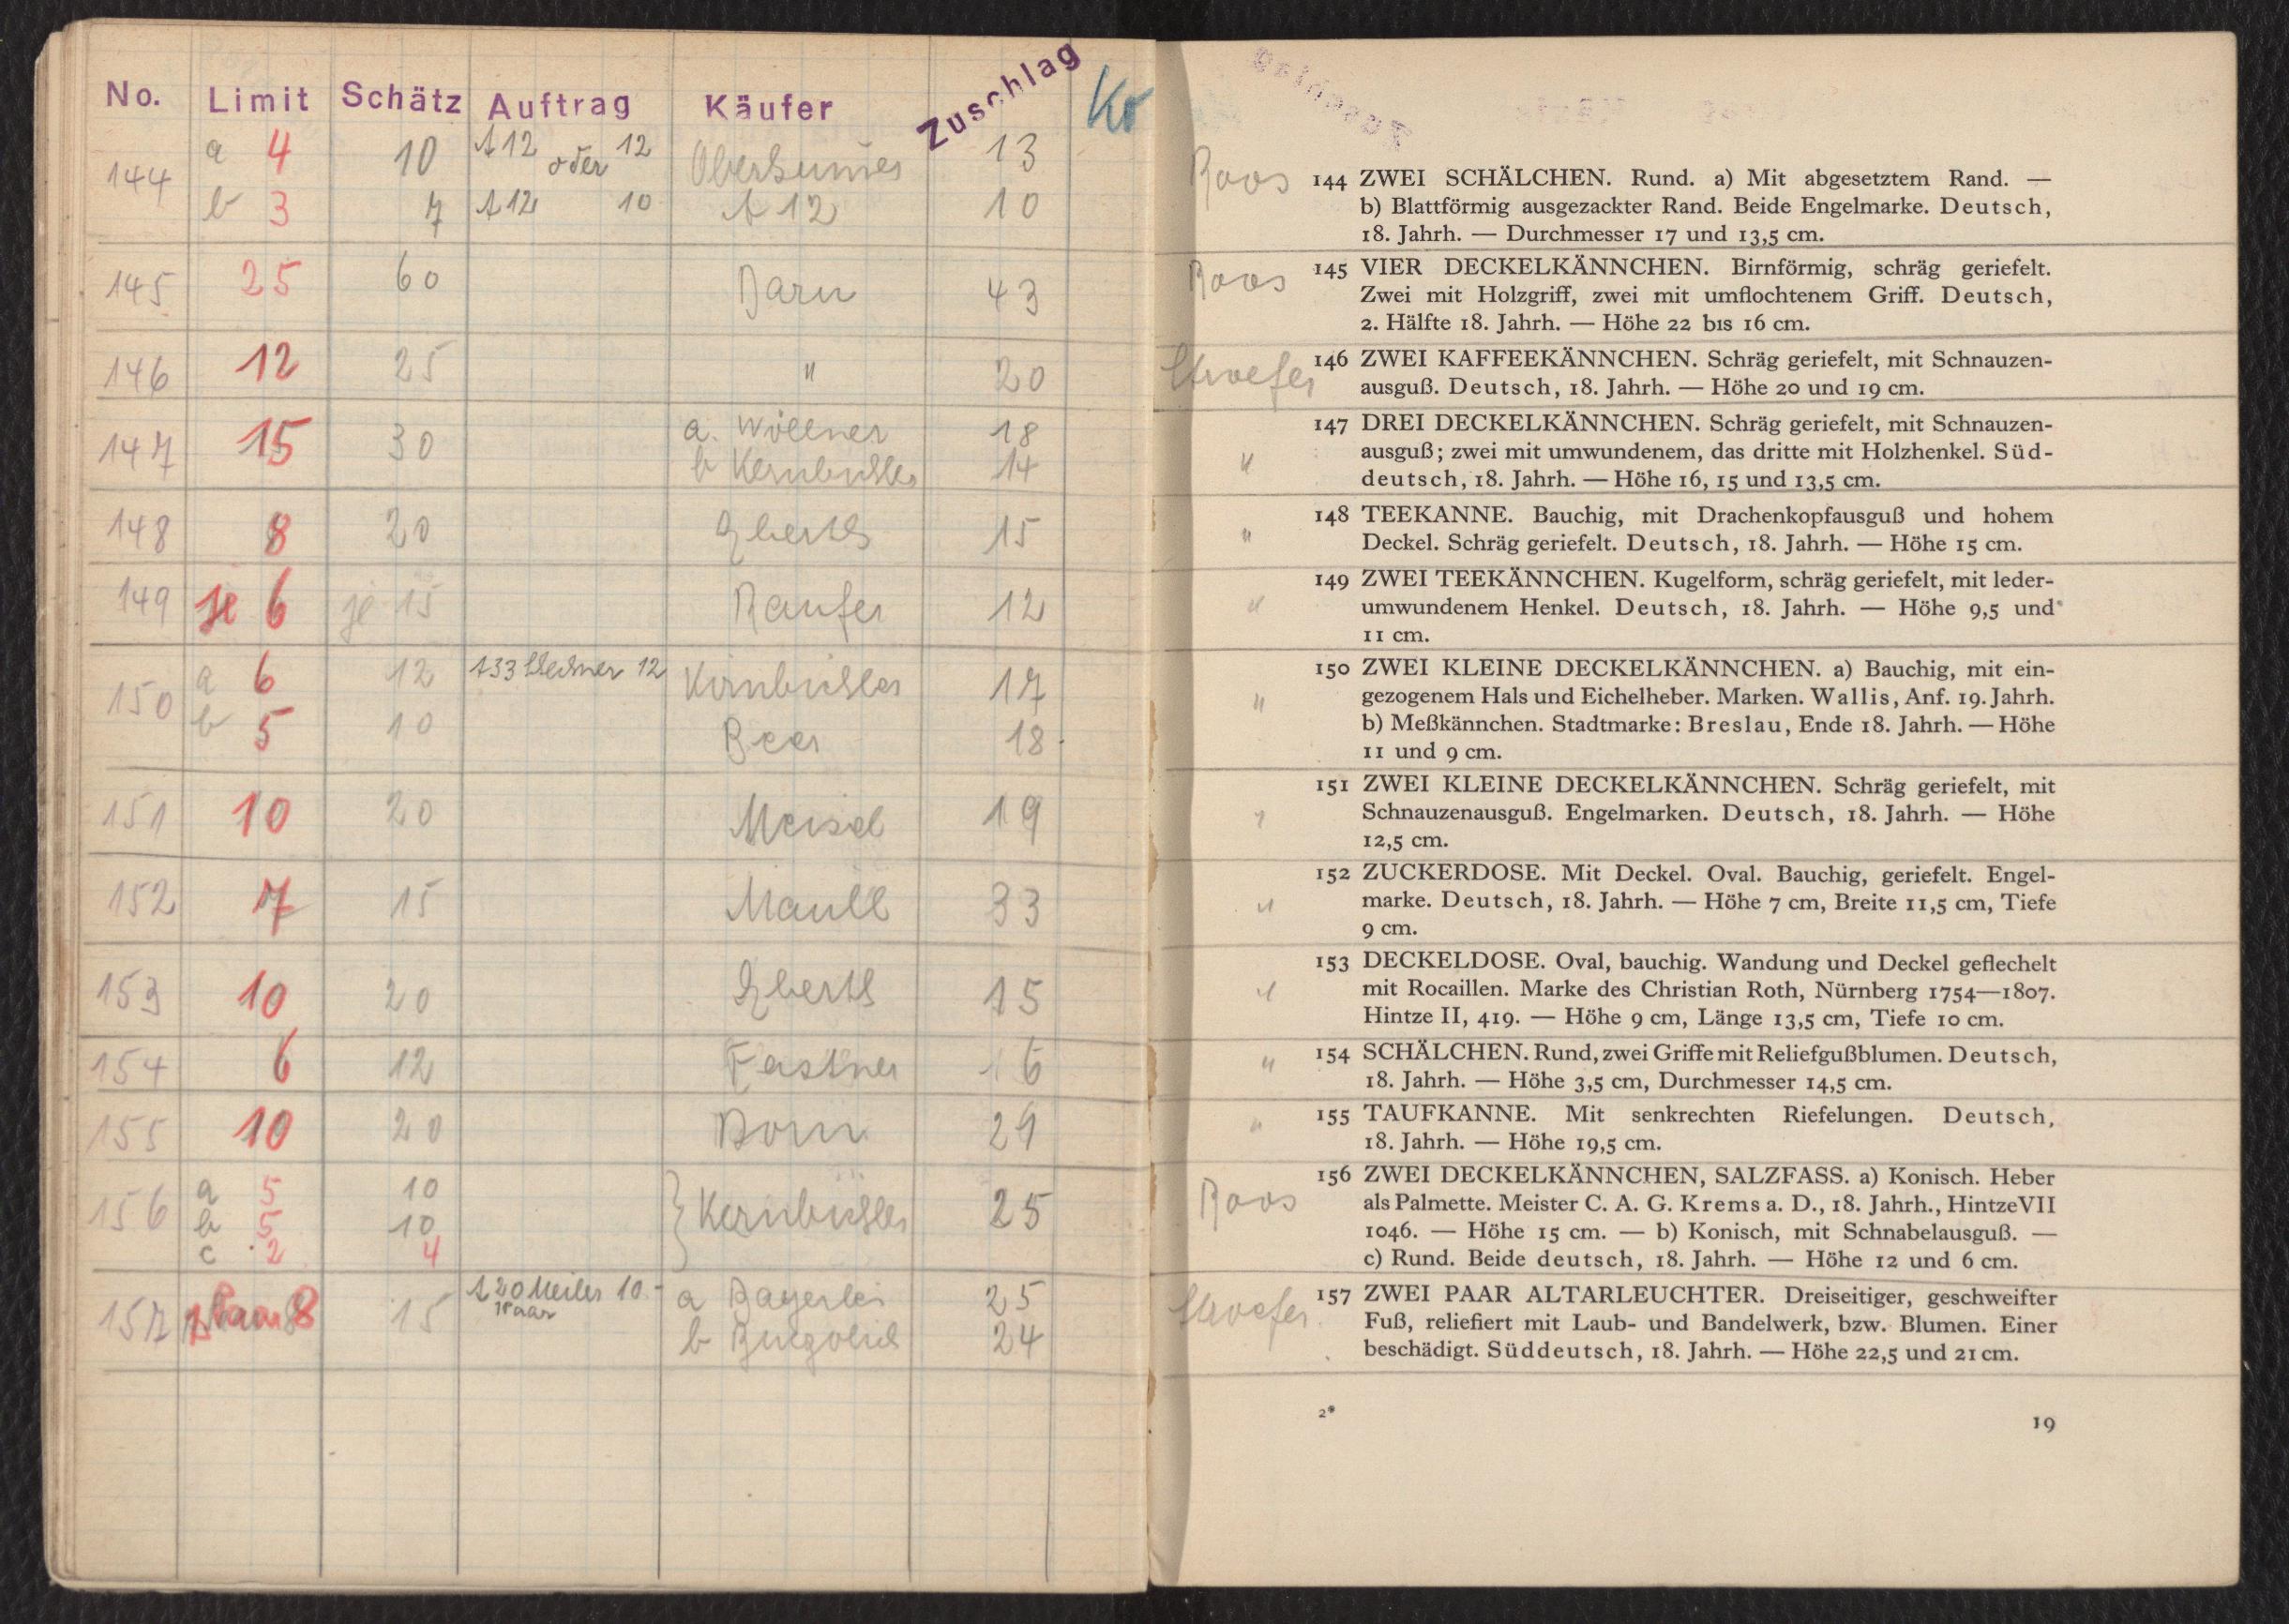 No. Limit Schätz Auftrag Käufer Zuschlag
144 a 4 10 A12 oder 12 13
b 3 7 A12 10 A12 10
145 25 60 43
146 12 25 " 20
147 15 30 a. Wöllner 18
b Kernbichler 14
148 8 20 15
149 je 6 je 15 12
150 a 6 12 A33 12 Kirnbichler 17
b 5 10 Beer 18
151 10 20 Meisel 19
152 7 15 33
153 10 20 15
154 6 12 Fastner 6
155 10 20 29
156 a 5 10 Kernbichler 25
b 5 10
c 2 4
157 8 15 A20 10.- a 25
1 Paar b 24
Roos 144 ZWEI SCHÄLCHEN. Rund. a) Mit abgesetztem Rand. —
b) Blattförmig ausgezackter Rand. Beide Engelmarke. Deutsch,
18. Jahrh. — Durchmesser 17 und 13,5 cm.
Roos 145 VIER DECKELKÄNNCHEN. Birnförmig, schräg geriefelt.
Zwei mit Holzgriff, zwei mit umflochtenem Griff. Deutsch,
2. Hälfte 18. Jahrh. — Höhe 22 bis 16 cm.
146 ZWEI KAFFEEKÄNNCHEN. Schräg geriefelt, mit Schnauzen-
ausguß. Deutsch, 18. Jahrh. — Höhe 20 und 19 cm.
147 DREI DECKELKÄNNCHEN. Schräg geriefelt, mit Schnauzen-
" ausguß; zwei mit umwundenem, das dritte mit Holzhenkel. Süd-
deutsch, 18. Jahrh. — Höhe 16, 15 und 13,5 cm.
" 148 TEEKANNE. Bauchig, mit Drachenkopfausguß und hohem
Deckel. Schräg geriefelt. Deutsch, 18. Jahrh. — Höhe 15 cm.
149 ZWEI TEEKÄNNCHEN. Kugelform, schräg geriefelt, mit leder-
" umwundenem Henkel. Deutsch, 18. Jahrh. — Höhe 9,5 und
11 cm.
150 ZWEI KLEINE DECKELKÄNNCHEN. a) Bauchig, mit ein-
" gezogenem Hals und Eichelheber. Marken. Wallis, Anf. 19. Jahrh.
b) Meßkännchen. Stadtmarke: Breslau, Ende 18. Jahrh. — Höhe
11 und 9 cm.
151 ZWEI KLEINE DECKELKÄNNCHEN. Schräg geriefelt, mit
" Schnauzenausguß. Engelmarken. Deutsch, 18. Jahrh. — Höhe
12,5 cm.
152 ZUCKERDOSE. Mit Deckel. Oval. Bauchig, geriefelt. Engel-
" marke. Deutsch, 18. Jahrh. — Höhe 7 cm, Breite 11,5 cm, Tiefe
9 cm.
153 DECKELDOSE. Oval, bauchig. Wandung und Deckel geflechelt
" mit Rocaillen. Marke des Christian Roth, Nürnberg 1754—1807.
Hintze II, 419. — Höhe 9 cm, Länge 13,5 cm, Tiefe 10 cm.
" 154 SCHÄLCHEN. Rund, zwei Griffe mit Reliefgußblumen. Deutsch,
18. Jahrh. — Höhe 3,5 cm, Durchmesser 14,5 cm.
" 155 TAUFKANNE. Mit senkrechten Riefelungen. Deutsch,
18. Jahrh. — Höhe 19,5 cm.
156 ZWEI DECKELKÄNNCHEN, SALZFASS. a) Konisch. Heber
Roos als Palmette. Meister C. A. G. Krems a. D., 18. Jahrh., Hintze VII
1046. — Höhe 15 cm. — b) Konisch, mit Schnabelausguß. —
c) Rund. Beide deutsch, 18. Jahrh. — Höhe 12 und 6 cm.
157 ZWEI PAAR ALTARLEUCHTER. Dreiseitiger, geschweifter
Fuß, reliefiert mit Laub- und Bandelwerk, bzw. Blumen. Einer
beschädigt. Süddeutsch, 18. Jahrh. — Höhe 22,5 und 21 cm.
2*
19